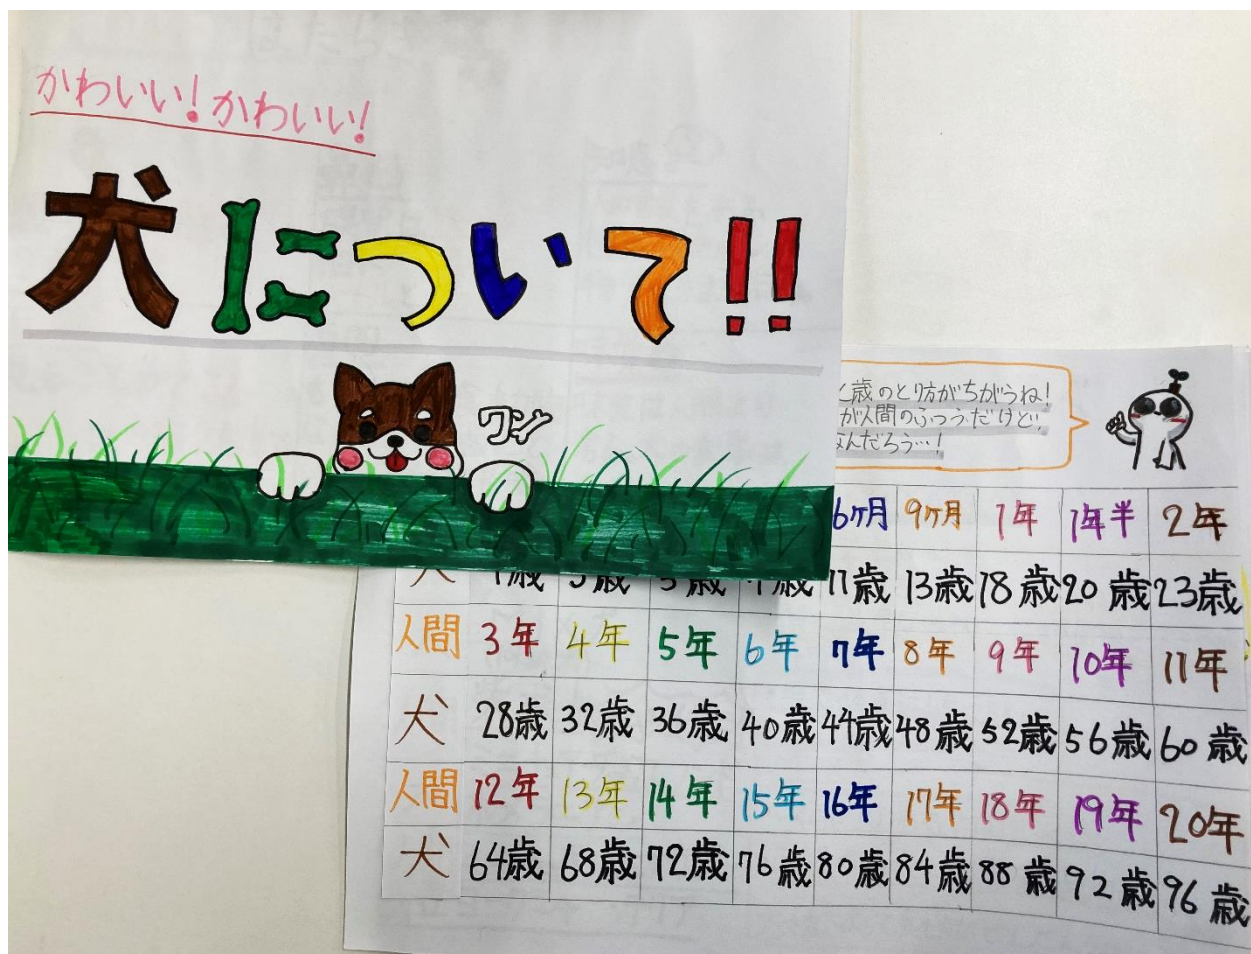 かわいい!かわいい!
犬について!!
ワン
歳のとり方がちがうね!
が人間のふつうだけど、
なんだろう…!
6ヶ月 9ヶ月 1年 1年半 2年
犬 1歳 11歳 13歳 18歳 20歳 23歳
人間 3年 4年 5年 6年 7年 8年 9年 10年 11年
犬 28歳 32歳 36歳 40歳 44歳 48歳 52歳 56歳 60歳
人間 12年 13年 14年 15年 16年 17年 18年 19年 20年
犬 64歳 68歳 72歳 76歳 80歳 84歳 88歳 92歳 96歳